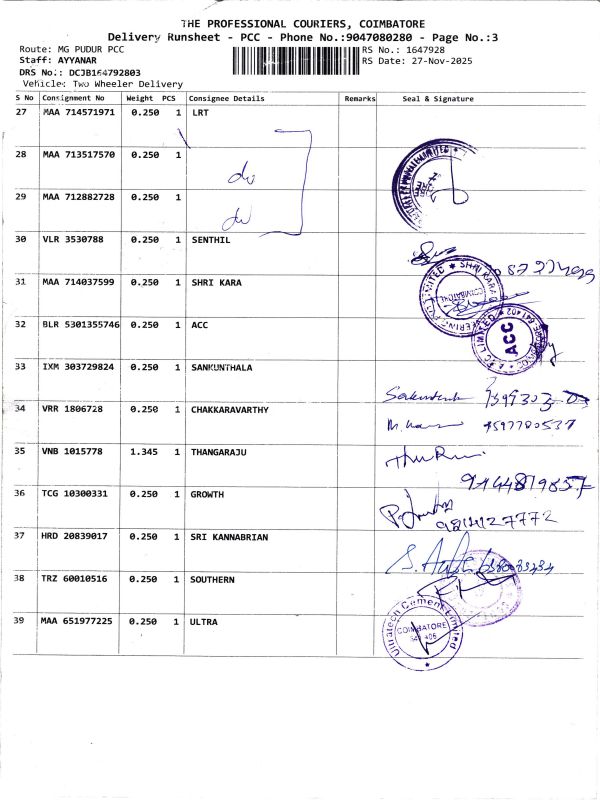 THE PROFESSIONAL COURIERS, COIMBATORE
Delivery Runsheet - PCC - Phone No.:9047080280 - Page No.:3
Route: MG PUDUR PCC
RS No.: 1647928
Staff: AYYANAR
RS Date: 27-Nov-2025
DRS No.: DCJB164792803
Vehicle: Two Wheeler Delivery
S No Consignment No Weight PCS Consignee Details Remarks Seal & Signature
27 MAA 714571971 0.250 1 LRT
28 MAA 713517570 0.250 1
do
29 MAA 712882728 0.250 1
do
30 VLR 3530788 0.250 1 SENTHIL
31 MAA 714037599 0.250 1 SHRI KARA
SHRI KARA
COIMBATORE
32 BLR 5301355746 0.250 1 ACC
ACC LIMITED
ACC
33 IXM 303729824 0.250 1 SANKUNTHALA
34 VRR 1806728 0.250 1 CHAKKARAVARTHY
9597780537
35 VNB 1015778 1.345 1 THANGARAJU
36 TCG 10300331 0.250 1 GROWTH
37 HRD 20839017 0.250 1 SRI KANNABRIAN
38 TRZ 60010516 0.250 1 SOUTHERN
39 MAA 651977225 0.250 1 ULTRA
Ultratech Cement Limited
COIMBATORE